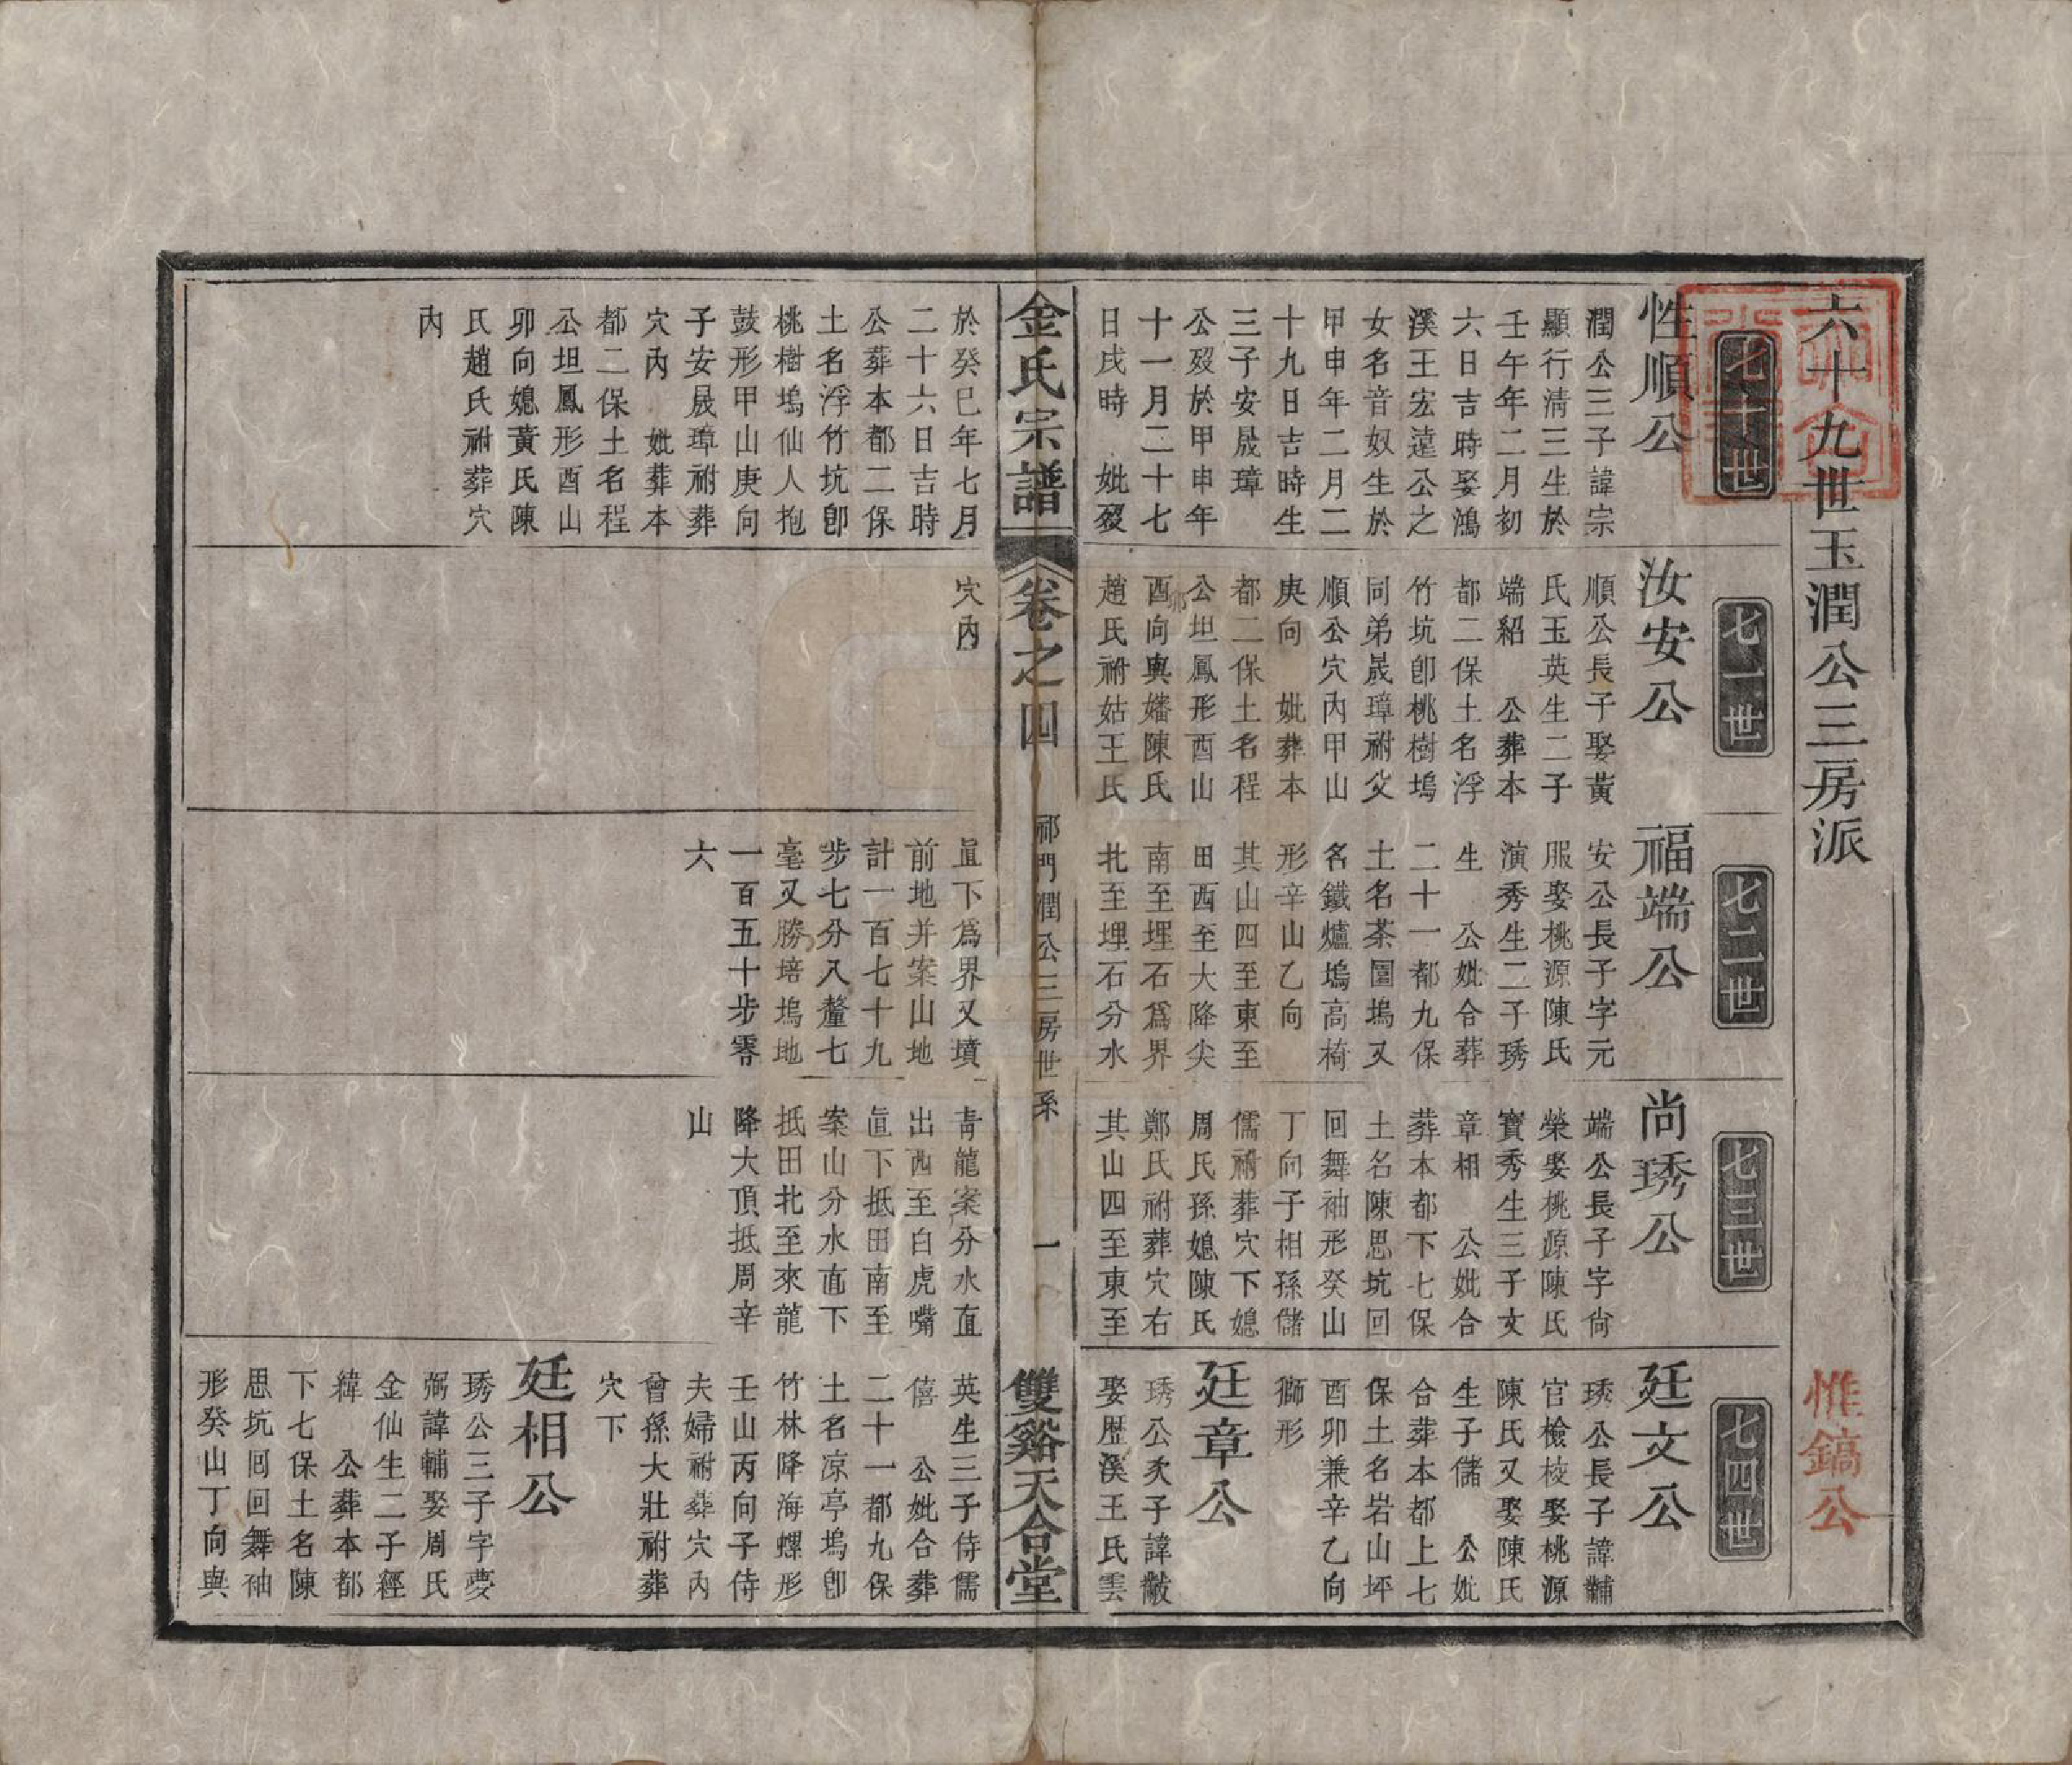 六十九世玉潤公三房派
惟鎬公
七十世
性順公
潤公三子諱宗
顯行清三生於
壬午年二月初
六日吉時娶鴻
溪王宏遠公之
女名音奴生於
甲申年二月二
十九日吉時生
三子安晟璋
公歿於甲申年
十一月二十七
日戌時 妣歿
於癸巳年七月
二十六日吉時
公葬本都二保
土名浮竹坑卽
桃樹塢仙人抱
鼓形甲山庚向
子安晟璋祔葬
穴內 妣葬本
都二保土名程
公坦鳳形酉山
卯向媳黃氏陳
氏趙氏祔葬穴
內
七一世
汝安公
順公長子娶黃
氏玉英生二子
端紹 公葬本
都二保土名浮
竹坑卽桃樹塢
同弟晟璋祔父
順公穴內甲山
庚向 妣葬本
都二保土名程
公坦鳳形酉山
卯
酉向與嬸陳氏
趙氏祔姑王氏
穴內
七二世
福端公
安公長子字元
服娶桃源陳氏
演秀生二子琇
生 公妣合葬
二十一都九保
土名茶園塢又
名鐵爐塢高椅
形辛山乙向
其山四至東至
田西至大降尖
南至埋石爲界
北至埋石分水
直下爲界又墳
前地并案山地
計一百七十九
步七分入釐七
毫又勝培塢地
一百五十步零
六
七三世
尚琇公
端公長子字尙
榮娶桃源陳氏
寶秀生三子文
章相 公妣合
葬本都下七保
土名陳思坑回
回舞袖形癸山
丁向子相孫儲
儒祔葬穴下媳
周氏孫媳陳氏
鄭氏祔葬穴右
其山四至東至
青龍案分水直
出西至白虎嘴
直下抵田南至
案山分水直下
抵田北至來龍
降大頂抵周辛
山
七四世
廷文公
琇公長子諱黼
官檢校娶桃源
陳氏又娶陳氏
生子儲 公妣
合葬本都上七
保土名岩山坪
酉卯兼辛乙向
獅形
廷章公
琇公次子諱黻
娶歷溪王氏雲
英生三子侍儒
僖 公妣合葬
二十一都九保
土名凉亭塢卽
竹林降海螺形
壬山丙向子侍
夫婦祔葬穴內
曾孫大壯祔葬
穴下
廷相公
琇公三子字夢
弼諱輔娶周氏
金仙生二子經
緯 公葬本都
下七保土名陳
思坑回回舞袖
形癸山丁向與
金氏宗譜
卷之四
祁門潤公三房世系
一
雙谿天合堂